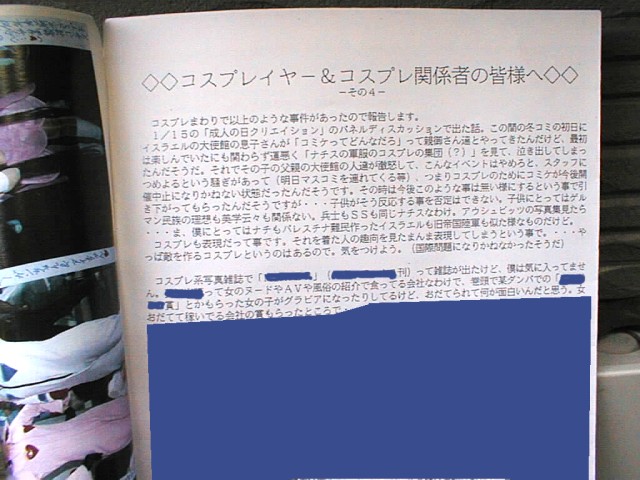 ◇◇コスプレイヤー＆コスプレ関係者の皆様へ◇◇
－その４－
コスプレまわりで以上のような事件があったので報告します。
１／１５の「成人の日クリエイション」のパネルディスカッションで出た話。この間の冬コミの初日に
イスラエルの大使館の息子さんが「コミケってどんなだろ」って親御さん達とやってきたんだけど、最初
は楽しんでいたにも関わらず運悪く「ナチスの軍服のコスプレの集団（？）」を見て、泣き出してしまっ
たんだそうだ。それでその子の父親の大使館の人達が激怒して、こんなイベントはやめろと、スタッフに
つめよるという騒ぎがあって（明日マスコミを連れてくる等）、つまりコスプレのためにコミケが今後開
催中止になりかねない状態だったんだそうです。その時は今後このような事は無い様にするという事で引
き下がってもらったんだそうですが・・・子供がそう反応する事を否定はできない。子供にとってはゲル
マン民族の理想も美学云々も関係ない。兵士もＳＳも同じナチスなわけ。アウシュビッツの写真集見たら
・・・ま、僕にとってはナチもパレスチナ難民作ったイスラエルも旧帝国陸軍も似た様なものだけど。
コスプレも表現だって事です。それを着た人の趣向を見たまんま表現してしまうという事で。・・・や
っぱ敵を作るコスプレというのはあるので。気をつけよう。（国際問題になりかねなかったそうだ）
コスプレ系写真雑誌で「」（刊）って雑誌が出たけど、僕は気に入ってませ
ん。って女のヌードやＡＶや風俗の紹介で食ってる会社なわけで、巻頭で某ダンパでの「
賞」とかもらった女の子がグラビアになったりしてるけど、おだてられて何が面白いんだと思う。女
おだてて稼いでる会社の賞もらったところで・